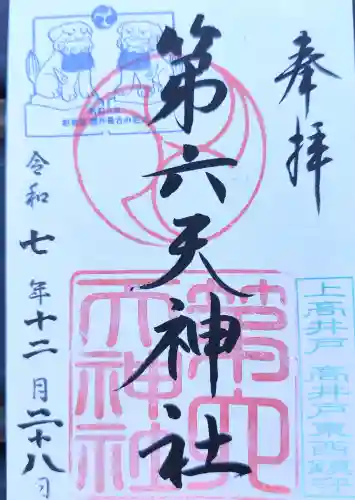 奉拝
第六天神社
令和七年十二月二十八日
第六
天神社
上高井戸 高井戸東西鎮守